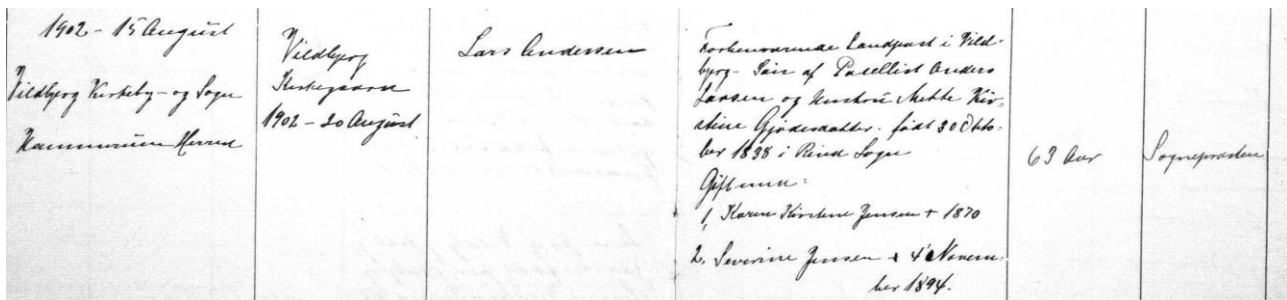 1902 - 15 August
Vildbjerg Kirkeby - og Sogn
Hammerum Herred
Vildbjerg
Kirkegaard
1902 - 20 August
Lars Andersen
Forhenværende Landpost i Vild-
bjerg - Søn af Parcellist Anders
Larsen og Hustru Mette Kir-
stine Gjødesdatter. født 30 Okto-
ber 1838 i Rind Sogn
Gift med:
1, Karen Kirstine Jensen + 1870
2. Severine Jensen + 4 Novem-
ber 1894.
63 Aar
Sognepræsten